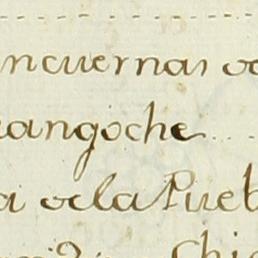 ncuernas de
rangoche
a de la Pueb